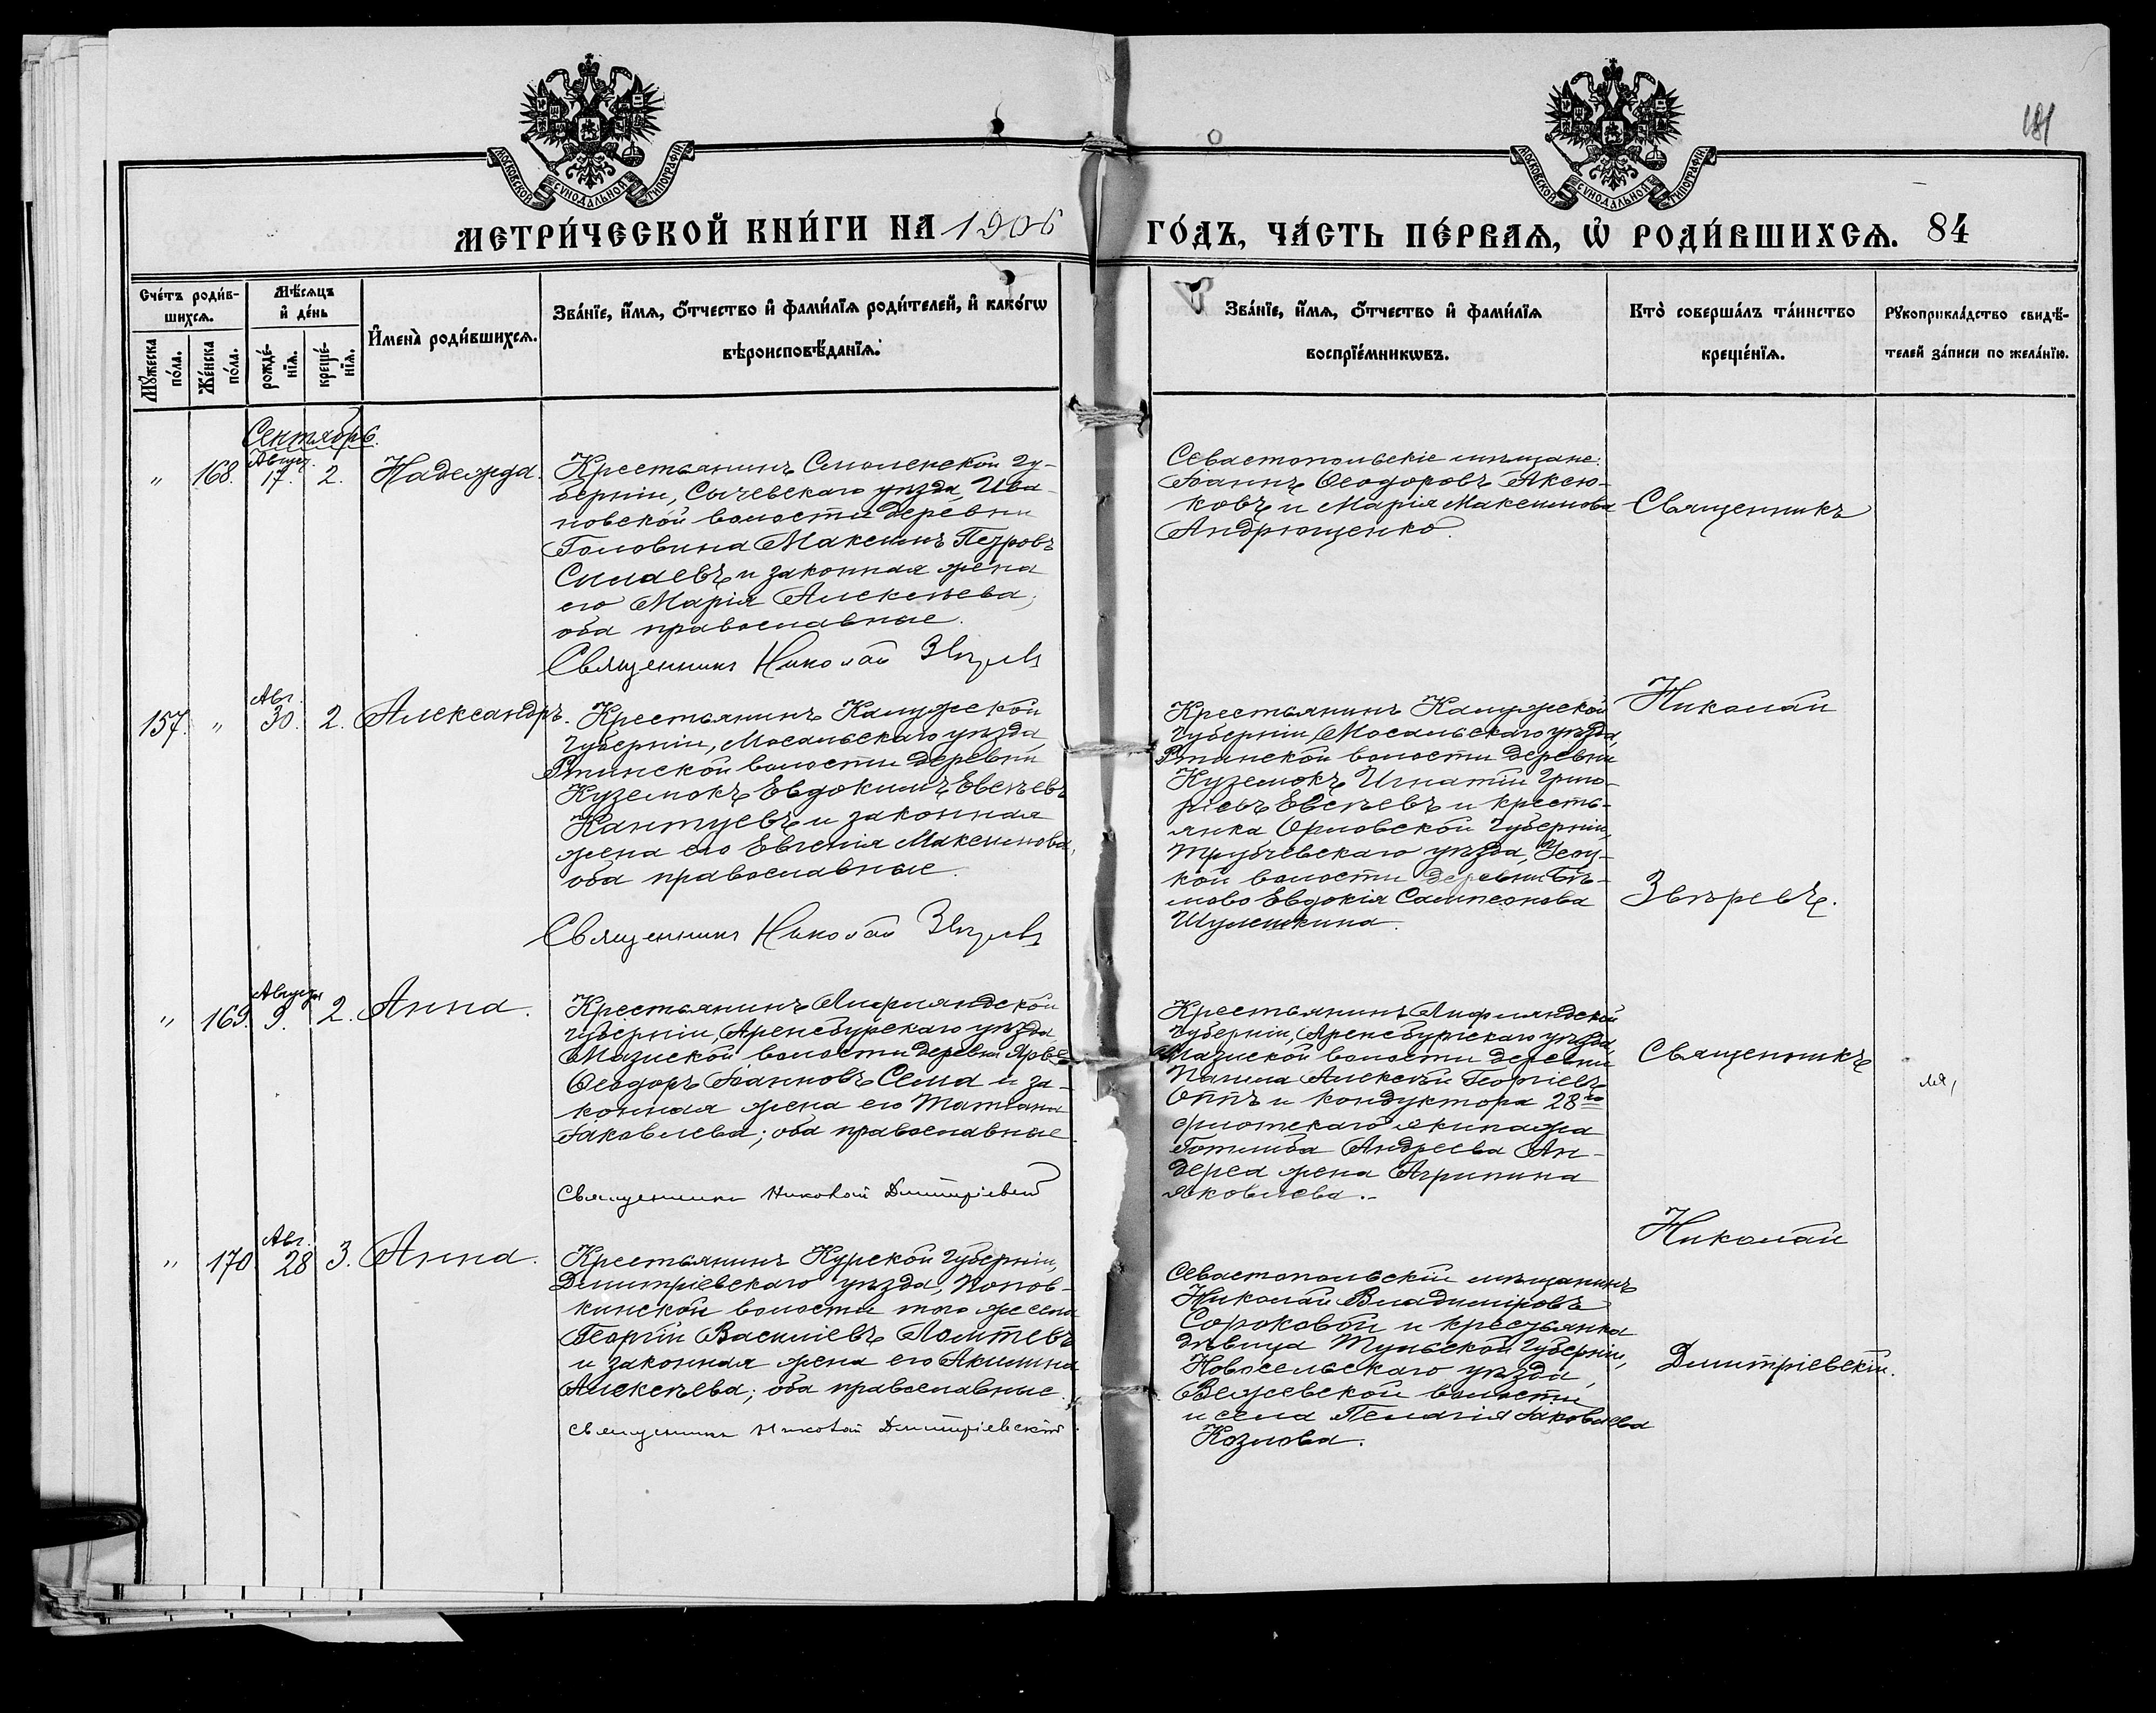 181
МОСКОВСКОЙ СѴНОДАЛЬНОЙ ТИПОГРАФІИ
МОСКОВСКОЙ СѴНОДАЛЬНОЙ ТИПОГРАФІИ
МЕТРИ́ЧЕСКОЙ КНИ́ГИ НА 1906
ГО́ДЪ, ЧА́СТЬ ПЕ́РВАѦ, Ѡ҆ РОДИ́ВШИХСѦ. 84
Сче́тъ роди́в-
шихсѧ.
Мꙋ́жеска
по́ла.
Же́нска
по́ла.
Мѣ́сѧцъ
и҆ де́нь
рожде́-
нїѧ.
креще́-
нїѧ.
И҆мена̀ роди́вшихсѧ.
Зва́нїе, и҆́мѧ, ѻ҆́тчество и҆ фами́лїѧ роди́телей, и҆ како́гѡ
вѣроисповѣ́данїѧ.
Зва́нїе, и҆́мѧ, ѻ҆́тчество и҆ фами́лїѧ
воспрїе́мникѡвъ.
Кто̀ соверша́лъ та́инство
креще́нїѧ.
Рꙋкоприкла́дство свидѣ́-
телей за́писи по жела́нїю.
Сентябрь.
"
168.
Август.
17.
2.
Надежда.
Крестьянинъ Смоленской гу-
берніи, Сычевскаго уѣзда, Ива-
новской волости деревни
Головина Максимъ Петровъ
Силаевъ и законная жена
его Марія Алексѣева,
оба православные.
Священникъ Николай Звѣревъ
Севастопольскіе мѣщане:
Іоаннъ Ѳеодоровъ Аксю-
ковъ и Марія Максимова
Андрющенко.
Священникъ
157.
"
Авг.
30.
2.
Александръ.
Крестьянинъ Калужской
губерніи, Мосальскаго уѣзда,
волости деревни
Куземокъ Евдокимъ Евсѣевъ
и законная
жена его Евгенія Максимова,
оба православные.
Священникъ Николай Звѣревъ
Крестьянинъ Калужской
губерніи, Мосальскаго уѣзда,
волости деревни
Куземокъ Игнатій Григо-
рьевъ Евсѣевъ и кресть-
янка Орловской губерніи,
Трубчевскаго уѣзда,
кой волости деревни
Евдокія Сампсонова
Шулешкина.
Николай
Звѣревъ.
"
169.
Августа
9.
2.
Анна.
Крестьянинъ Лифляндской
губерніи, Аренсбургскаго уѣзда,
волости деревни
Ѳеодоръ Іоанновъ Семъ и за-
конная жена его Татіана
Іаковлева; оба православные.
Священникъ Николай Дмитріевскій
Крестьянинъ Лифляндской
губерніи, Аренсбургскаго уѣзда,
волости деревни
Алексѣй Георгіевъ
и кондуктора 28го
флотскаго экипажа
Готлиба Андреева Ан-
дерса жена Агрипина
Яковлева.
Священникъ
"
170
Авг.
28
3.
Анна.
Крестьянинъ Курской губерніи,
Дмитріевскаго уѣзда, Попов-
кинской волости того же села
Георгій Василіевъ Ломтевъ
и законная жена его Акилина
Алексѣева; оба православные.
Священникъ Николай Дмитріевскій
Севастопольскій мѣщанинъ
Николай Владиміровъ
Сороковой и крестьянка
дѣвица Тульской губерніи,
Новосельскаго уѣзда,
Вежевской волости
и села Пелагія Іаковлева
Козлова.
Николай
Дмитріевскій.